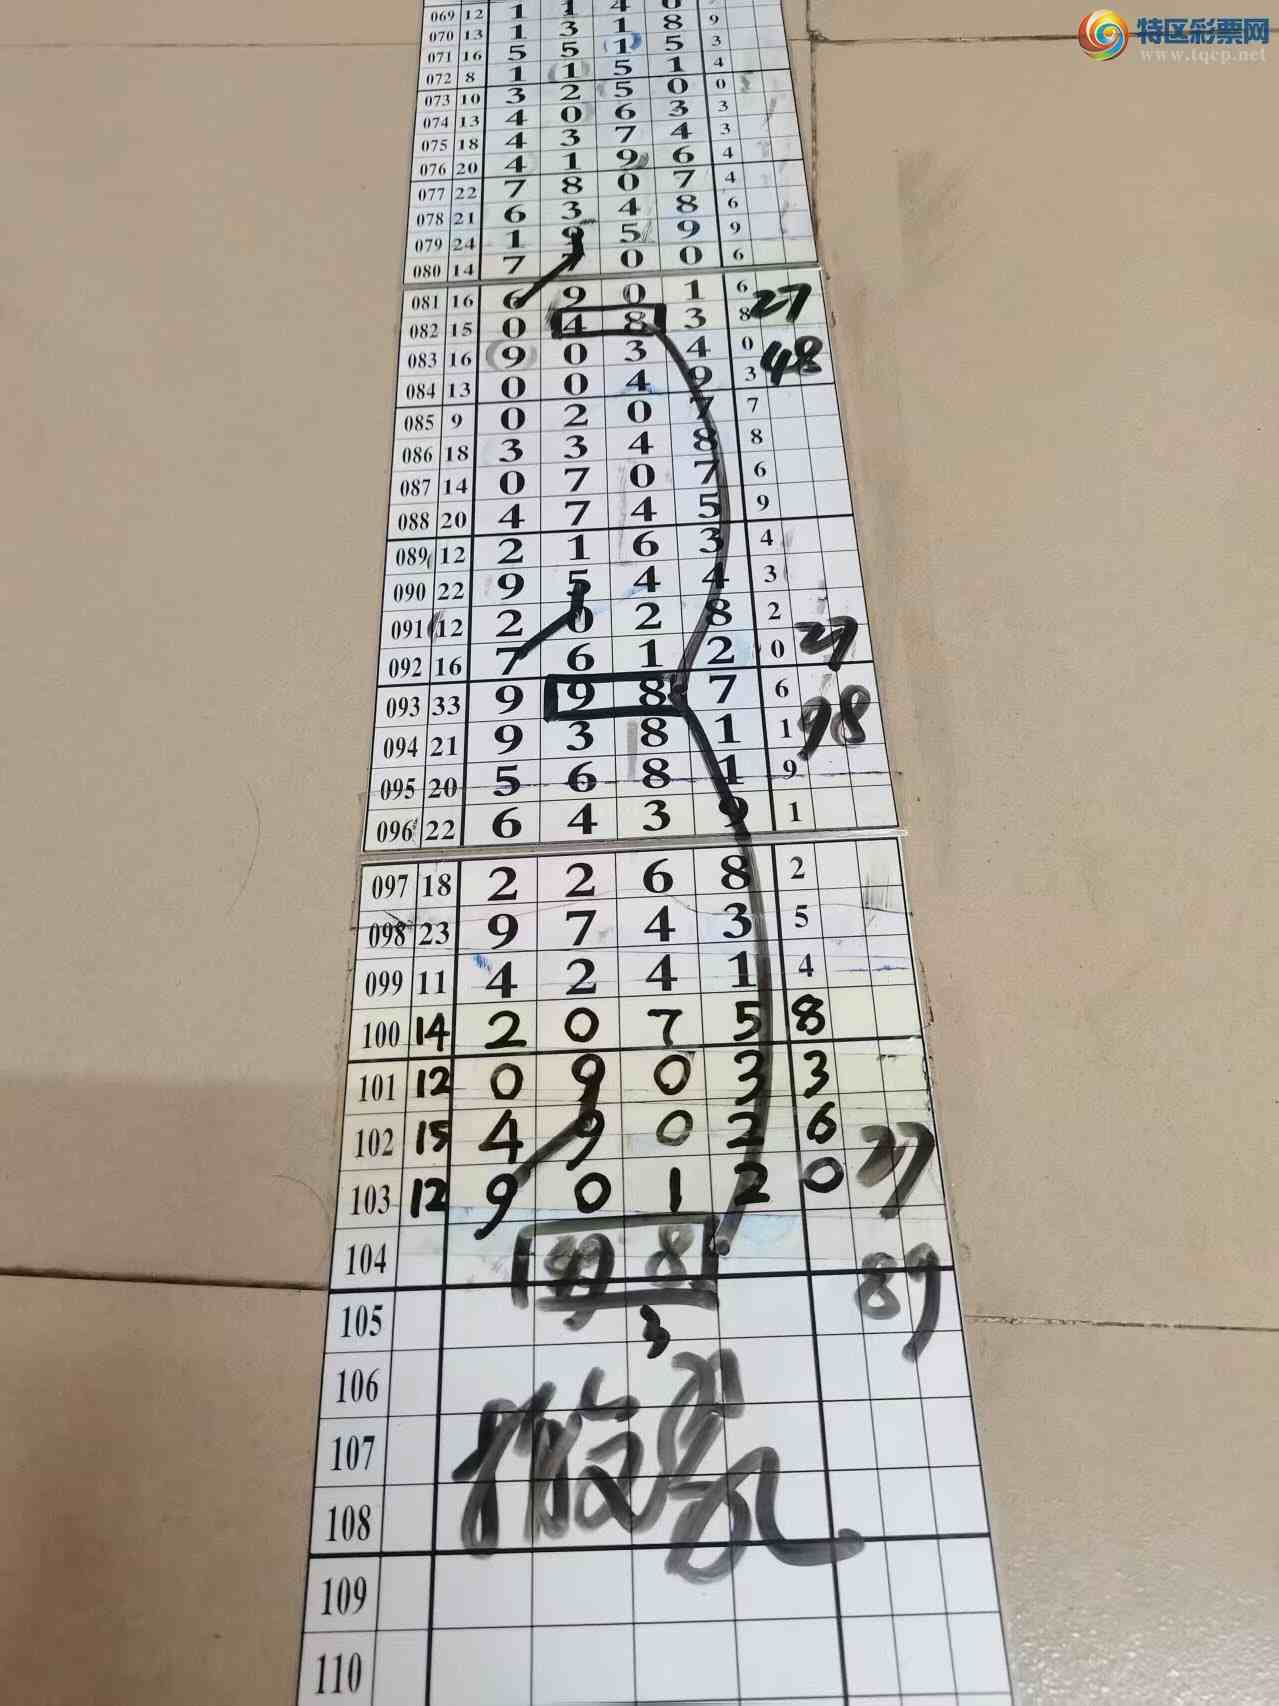 特区彩票网
www.tqcp.net
069 12 1 1 4 6
070 13 1 3 1 8 9
071 16 5 5 1 5 3
072 8 1 1 5 1 4
073 10 3 2 5 0 0
074 13 4 0 6 3 3
075 18 4 3 7 4 3
076 20 4 1 9 6 4
077 22 7 8 0 7 4
078 21 6 3 4 8 6
079 24 1 9 5 9 9
080 14 7 7 0 0 6
081 16 6 9 0 1 6 27
082 15 0 4 8 3 8
083 16 9 0 3 4 0 48
084 13 0 0 4 9 3
085 9 0 2 0 7 7
086 18 3 3 4 8 8
087 14 0 7 0 7 6
088 20 4 7 4 5 9
089 12 2 1 6 3 4
090 22 9 5 4 4 3
091 12 2 0 2 8 2
092 16 7 6 1 2 0 27
093 33 9 9 8 7 6
094 21 9 3 8 1 1 98
095 20 5 6 8 1 9
096 22 6 4 3 9 1
097 18 2 2 6 8 2
098 23 9 7 4 3 5
099 11 4 2 4 1 4
100 14 2 0 7 5 8
101 12 0 9 0 3 3
102 15 4 9 0 2 6 27
103 12 9 0 1 2 0
104 8 89
105 3
106
107
108
109
110